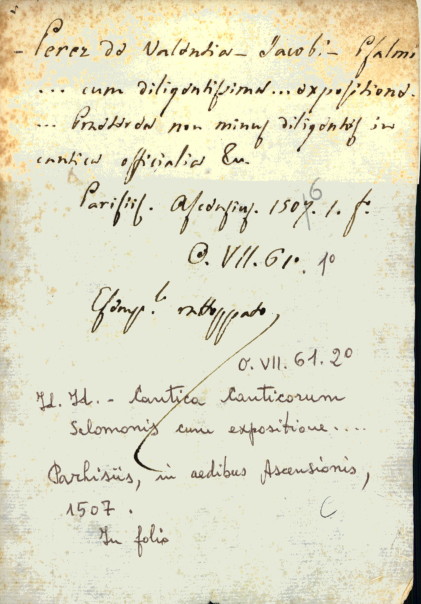 - Perez de Valentia - Jacobi - Psalmi
... cum diligentissima ... expositione.
... Praeterea non minus diligentes in
cantica officialia &c.
Parisiis. Ascensius. 1507. 1. fº.
6
O. VII. 61. 1º
Esemp.le rattoppato
O. VII. 61. 2º
Id. Id. - Cantica Canticorum
Salomonis cum expositione....
Parhisiis, in aedibus Ascensionis,
1507.
In folio